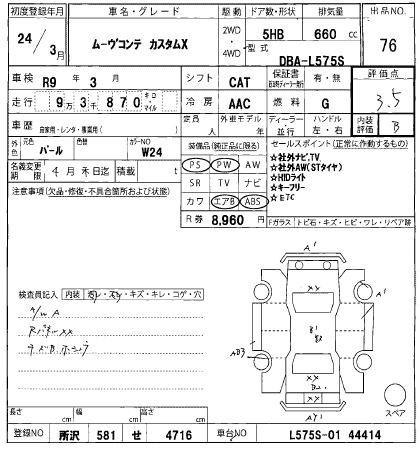 初度登録年月 車名・グレード 駆動 ドア数・形状 排気量 出品NO.
24/3月 ムーヴコンテ カスタムX 2WD・4WD 5HB 660cc 76
型式 DBA-L575S
車検 R9年3月 シフト CAT 保証書 有・無 評価点 3.5
走行 9万3千870 キロ・マイル 冷房 AAC 燃料 G
車歴 自家用・レンタ・事業用( ) 定員 人 外車モデル 年 ディーラー・並行 ハンドル 左・右 内装評価 B
外色 元色 パール 色替 カラーNO W24
装備品(純正品に限る) セールスポイント(正常に作動するもの)
PS PW AW
SR TV ナビ
カワ エアB ABS
☆社外ナビ,TV
☆社外AW(STタイヤ)
☆HIDライト
☆キーフリー
☆ETC
名義変更期限 4月末日迄 積載 t
注意事項(欠品・修復・不具合箇所および状態)
R券 8,960円
Fガラス トビ石・キズ・ヒビ・ワレ・リペア跡
検査員記入 内装 汚レ・スレ・キズ・キレ・コゲ・穴
A/W A
Rバネルxx
A'
XX
B'
AB3
XX
A'
スペア
長さ cm 幅 cm 高さ cm
登録NO 所沢 581 せ 4716 車台NO L575S-01 44414